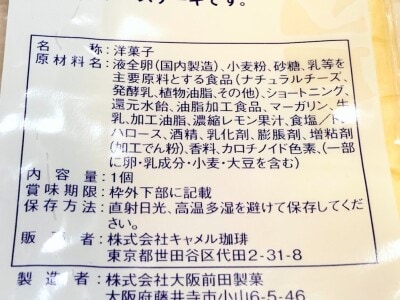 ースケーキです。
名　　称：洋菓子
原材料名：液全卵（国内製造）、小麦粉、砂糖、乳等を
主要原料とする食品（ナチュラルチーズ、
発酵乳、植物油脂、その他）、ショートニング、
還元水飴、油脂加工食品、マーガリン、牛
乳、加工油脂、濃縮レモン果汁、食塩／ト
ハロース、酒精、乳化剤、膨脹剤、増粘剤
（加工でん粉）、香料、カロチノイド色素、（一部
に卵・乳成分・小麦・大豆を含む）
内 容 量：1個
賞味期限：枠外下部に記載
保存方法：直射日光、高温多湿を避けて保存してくだ
さい。
販 売 者：株式会社キャメル珈琲
東京都世田谷区代田2-31-8
製 造 者：株式会社大阪前田製菓
大阪府藤井寺市小山6-5-46